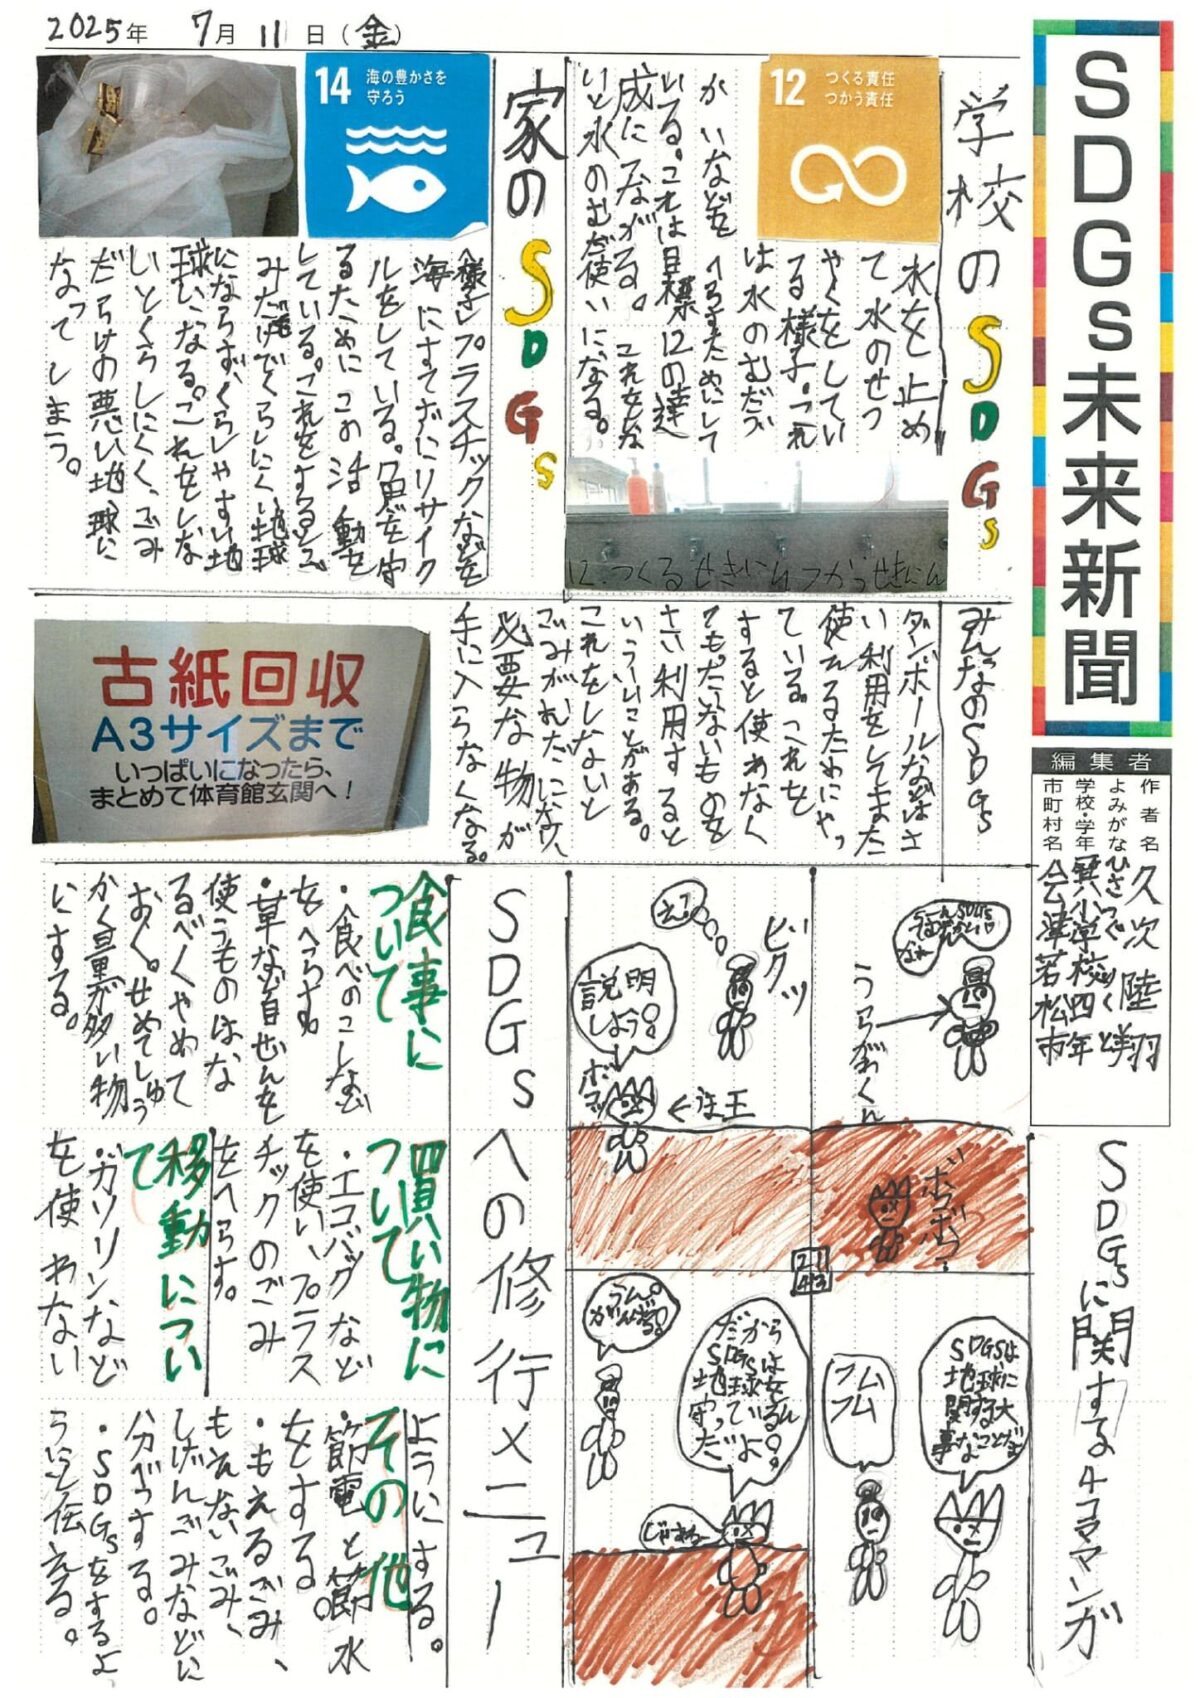 2025年 7月 11日(金)
SDGs未来新聞
編集者
作者名 久次 陸翔
よみがな ひさつぐ りくと
学校・学年 小学校四年
市町村名 会津若松市
学校のSDGs
12 つくる責任
つかう責任
水を止め
て水のせつ
やくをしてい
る様子。これ
は水のむだづ
かいなどを
へらすためにして
いる。これは目標12の達
成につながる。これをしな
いと水のむだ使いになる。
12.つくるせきにんつかうせきにん
家のSDGs
14 海の豊かさを
守ろう
(様子)プラスチックなどを
海にすてずにリサイク
ルをしている。魚を守
るためにこの活動を
している。これをするとご
みだけでくらしにくい地球
にならず、くらしやすい地
球になる。これをしな
いとくらしにくく、ごみ
だらけの悪い地球に
なってしまう。
みんなのSDGs
ダンボールなどはさ
い利用をしてまた
使えるためにやっ
ている。これを
すると使わなく
てもったいないものを
さい利用すると
いういいことがある。
これをしないと
ごみがむだになり、
必要な物が
手に入らなくなる。
古紙回収
A3サイズまで
いっぱいになったら、
まとめて体育館玄関へ!
SDGsに関する4コママンガ
うらがくん
ボコボコ
ビクッ
えっ
説明
しよう。
ボコッ
←注王
SDGsは
地球に
関する大
事な
ことだ
フム
フム
だから
SDGsは
地球
守って
いるんだよ
じゃあねー
うん。
がんばる。
SDGsへの修行メニュー
食事に
ついて
・食べのこしなど
をへらす。
・草など自ぜんを
使うものはな
るべくやめて
おく。せめてしゅう
かく量が多い物
にする。
買い物に
ついて
・エコバッグなど
を使い、プラス
チックのごみ
をへらす。
移動につい
て
・ガソリンなど
を使わない
ようにする。
その他
・節電と節水
をする。
・もえるごみ、
もえないごみ、
しげんごみなどに
分べつする。
・SDGsをするよ
うにと伝える。